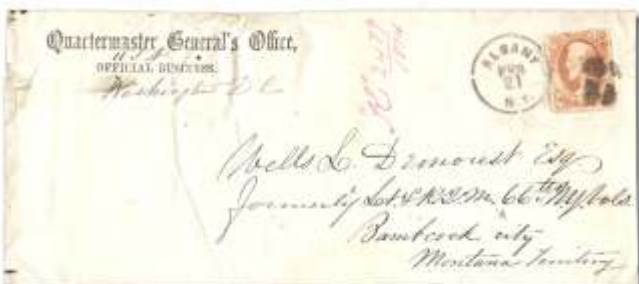 Quartermaster General's Office,
U S A
OFFICIAL BUSINESS.
Washington D C
ALBANY
21
N.Y.
Wells L. Demouest Esq
formerly Lt & R.Q.M. 66th NY Vols
Bambcock city
Montana Territory